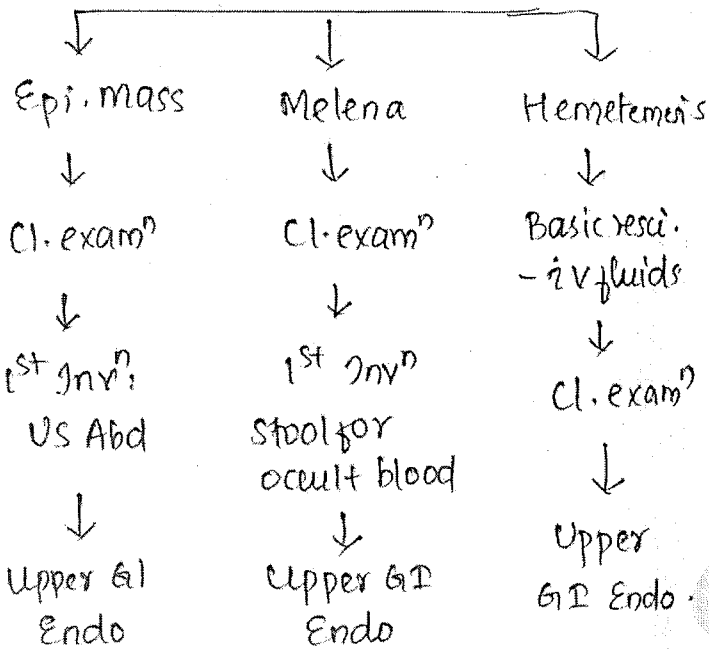 Epi. mass
↓
Cl. examⁿ
↓
1st Invⁿ:
US Abd
↓
Upper GI
Endo
Melena
↓
Cl. examⁿ
↓
1st Invⁿ
Stool for
occult blood
↓
Upper GI
Endo
Hemetemeris
↓
Basic resci.
- iv fluids
↓
Cl. examⁿ
↓
Upper
GI Endo.